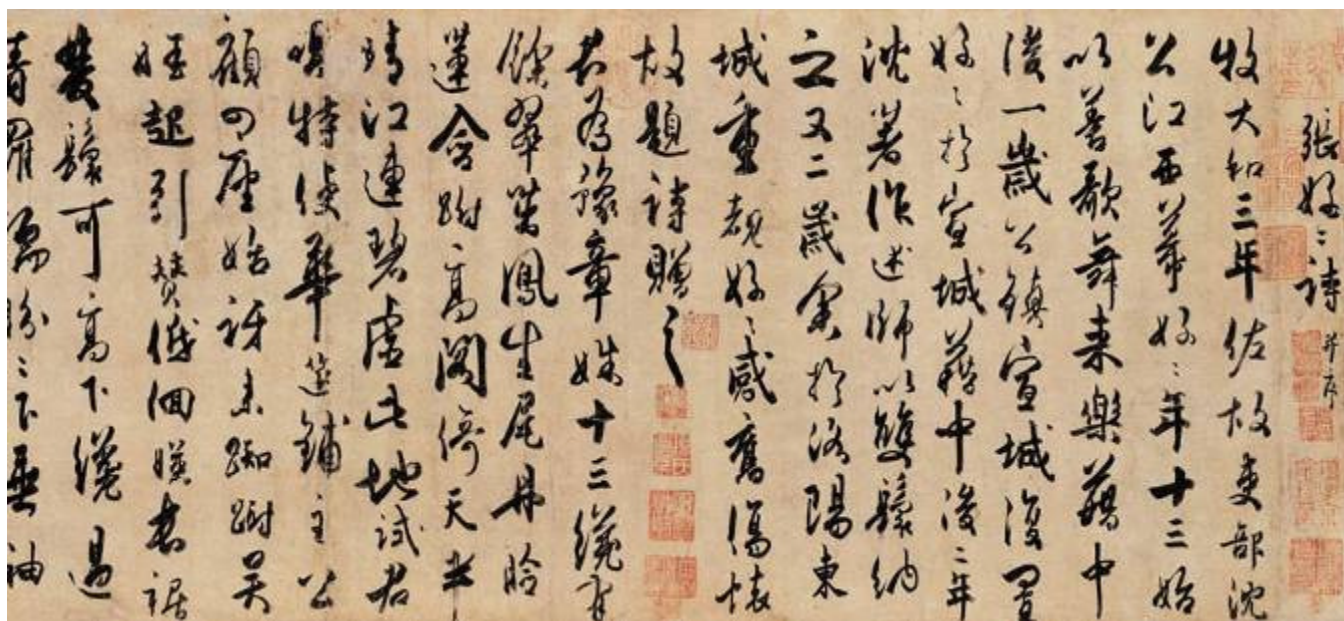 張好〻詩 并序
牧大和三年佐故吏部沈
公江西幕好〻年十三始
以善歌舞来樂籍中
後一歲公鎮宣城復置
好〻於宣城籍中後二年
沈著作述師以雙鬟納
之又二歲余於洛陽東
城重覩好〻感舊傷懷
故題詩贈之
君為豫章姝十三纔有
餘翠茁鳳生尾丹臉
蓮含跗高閣倚天半
晴江連碧虛此地試君
唱特使華筵鋪主公
顧四座始訝来踟蹰吳
娃起引贊低佪暎長裾
雙鬟可高下纔過
青羅襦盼〻下垂袖